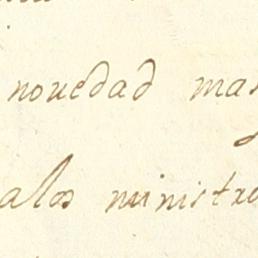 novedad mas
alos ministro